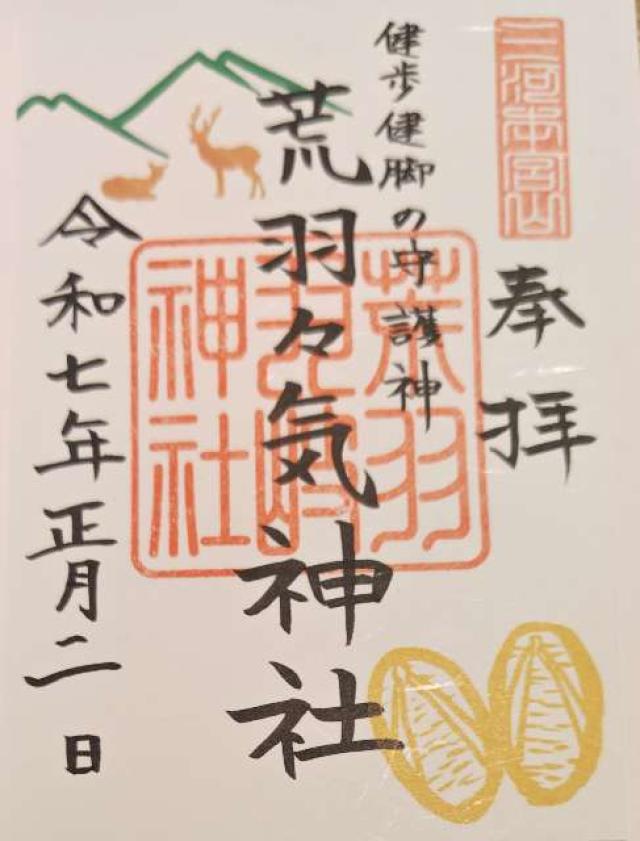 三河本宮山
奉拝
健歩健脚の守護神
荒羽々気神社
神社
令和七年正月二日